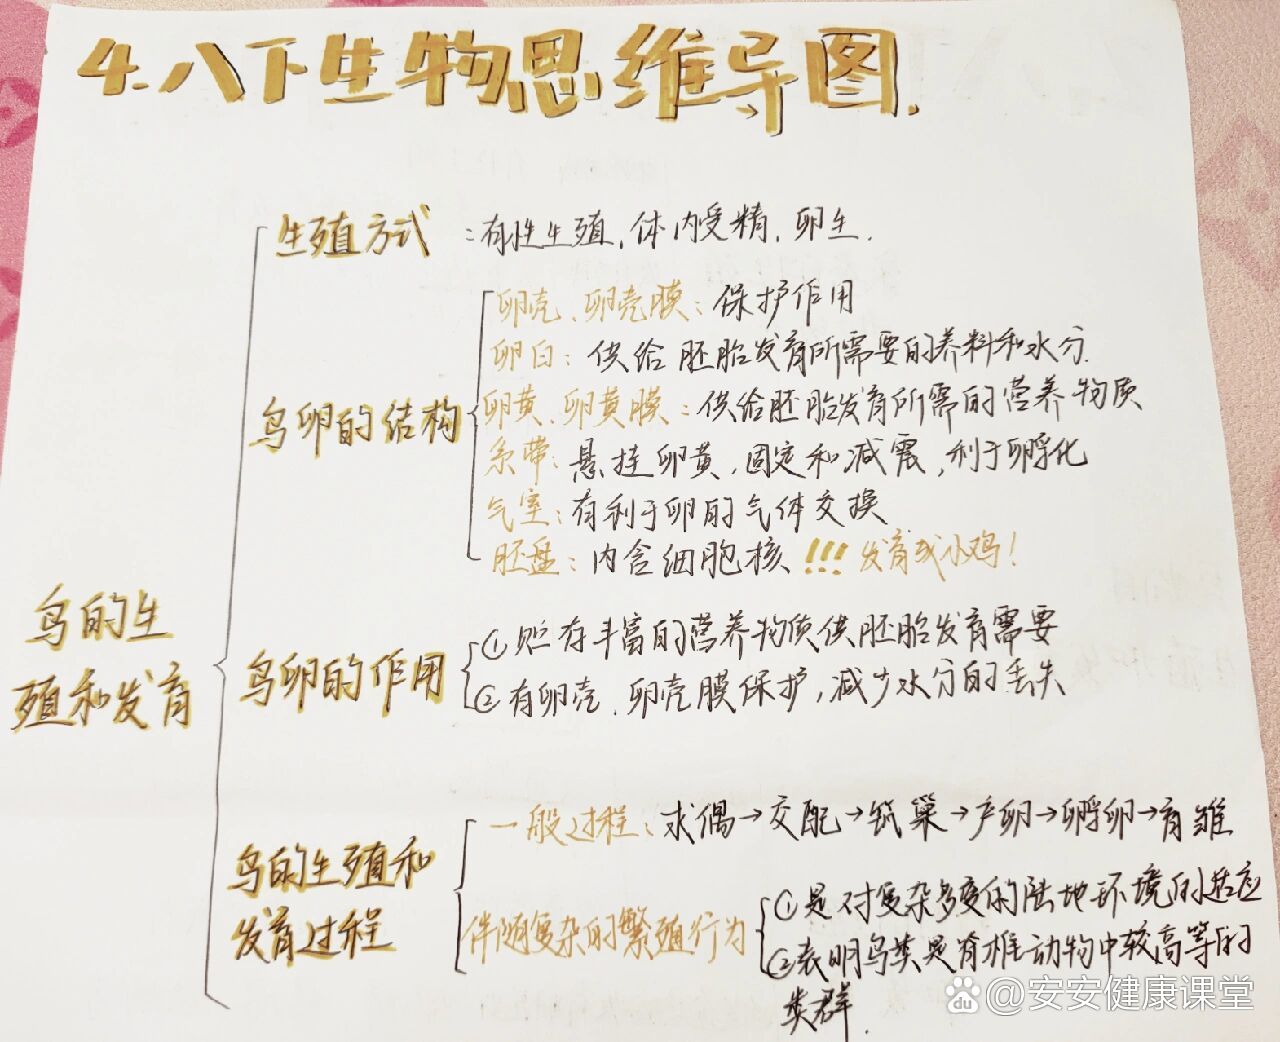 4.八下生物思维导图.
生殖方式：有性生殖、体内受精、卵生.
鸟卵的结构
卵壳、卵壳膜：保护作用
卵白：供给胚胎发育所需要的养料和水分.
卵黄、卵黄膜：供给胚胎发育所需的营养物质
系带：悬挂卵黄,固定和减震,利于孵化
气室：有利于卵的气体交换
胚盘：内含细胞核 !!! 发育成小鸡!
鸟的生
殖和发育
鸟卵的作用
①贮存丰富的营养物质供胚胎发育需要
②有卵壳、卵壳膜保护,减少水分的丢失
鸟的生殖和
发育过程
一般过程：求偶→交配→筑巢→产卵→孵卵→育雏
伴随复杂的繁殖行为
①是对复杂多变的陆地环境的适应
②表明鸟类是脊椎动物中较高等的
类群.
Bai du @安安健康课堂